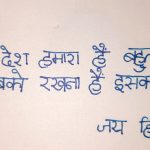 देश हमारा है बहु
बको रखना है इसक
जय हि